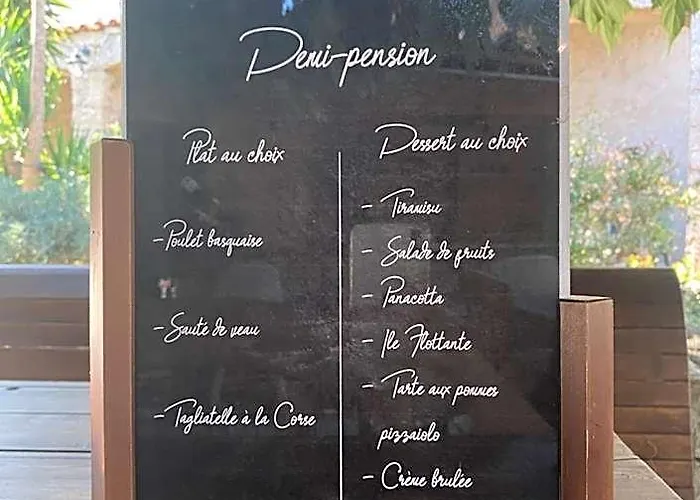 Demi-pension
Plat au choix
-Poulet basquaise
-Sauté de veau
-Tagliatelle à la Corse
Dessert au choix
- Tiramisu
- Salade de fruits
- Panacotta
- Ile Flottante
- Tarte aux pommes
pizzaiolo
- Crème brulée